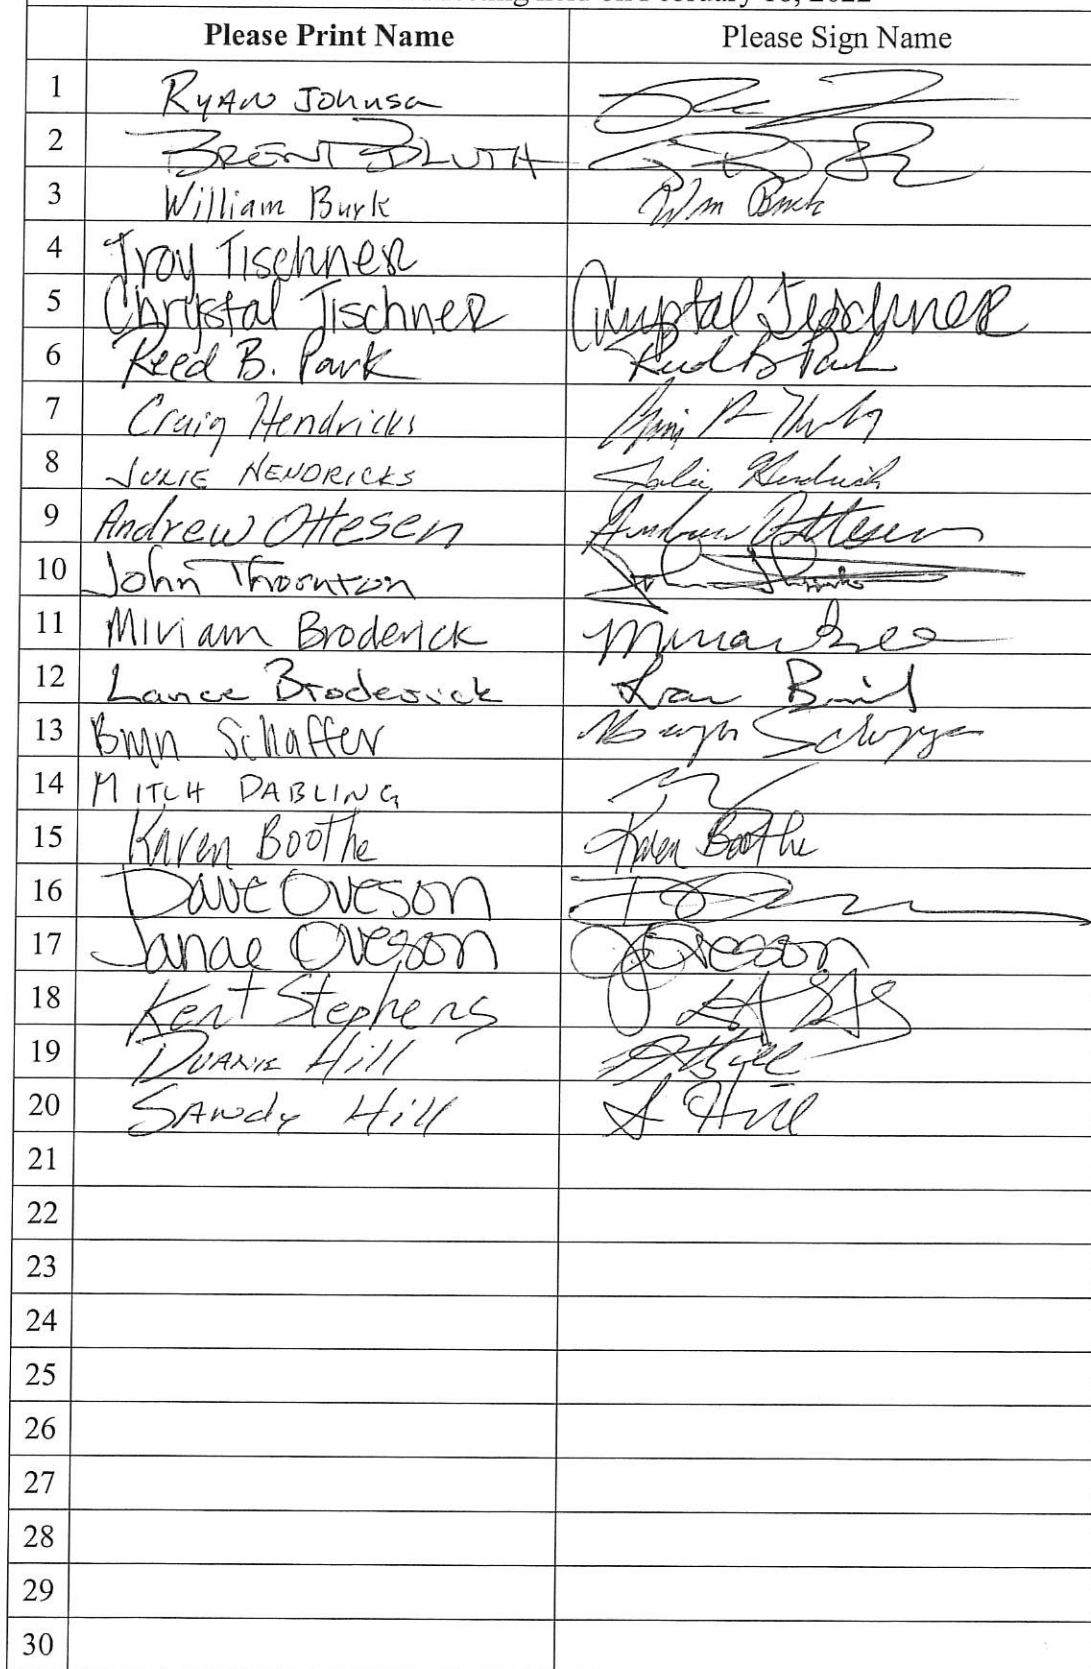 Meeting held on February 16, 2022
Please Print Name Please Sign Name
1 Ryan Johnson
2 BRENT BLUTH
3 William Burk Wm Burk
4 Troy Tischner
5 Chrystal Tischner Chrystal Tischner
6 Reed B. Park Reed B Park
7 Craig Hendricks
8 JULIE HENDRICKS Julie Hendricks
9 Andrew Ottesen Andrew Ottesen
10 John Thornton
11 Miriam Broderick
12 Lance Broderick
13 Schaffer
14 MITCH DABLING
15 Karen Boothe Karen Boothe
16 Dave Oveson
17 Janae Oveson J Oveson
18 Kent Stephens
19 Duane Hill
20 Sandy Hill S Hill
21
22
23
24
25
26
27
28
29
30